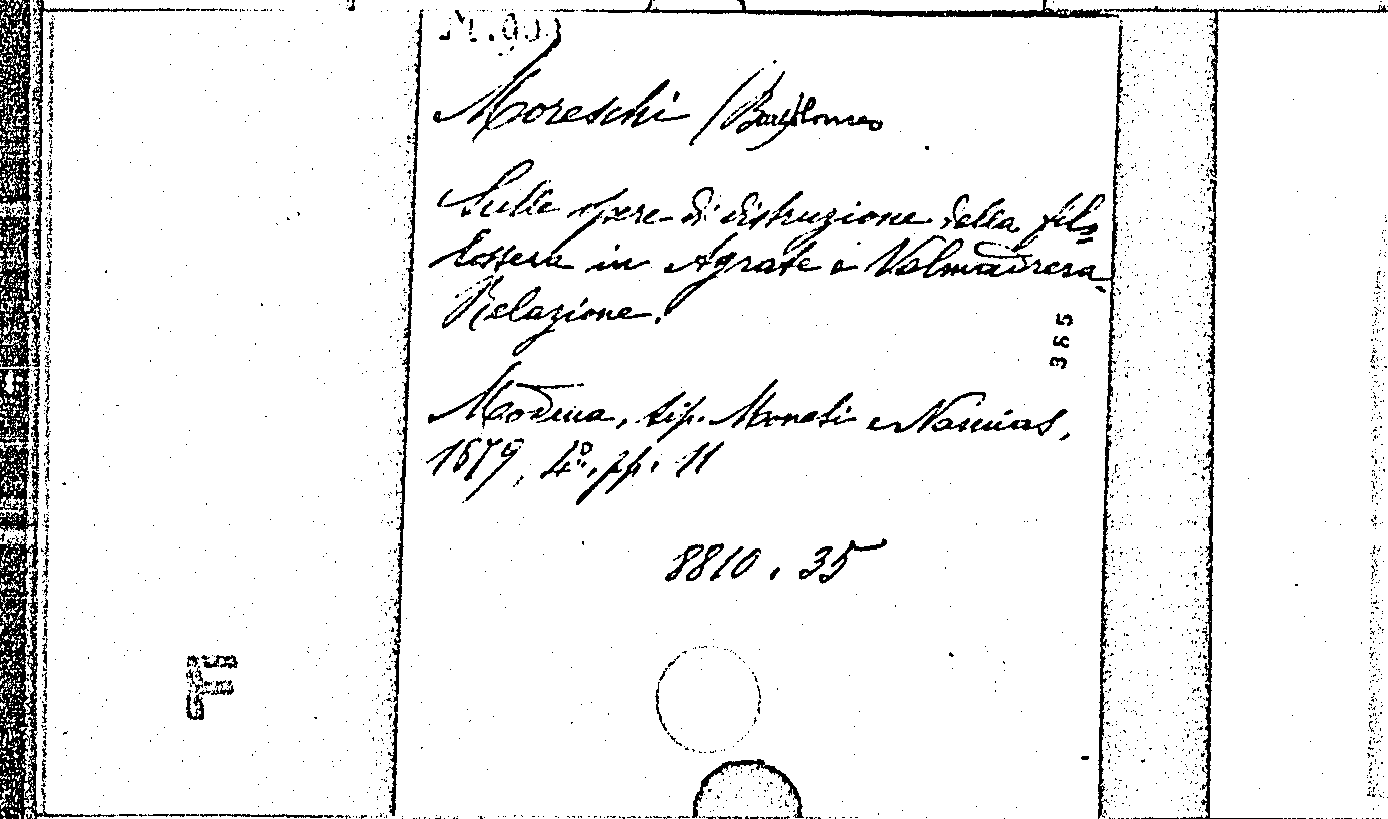 Moreschi (Bartolomeo
Sulle opere di distruzione della fil=
lossera in Agrate e Valmadrera.
Relazione.
365
Modena, tip. Moneti e Namias,
1879, 4°, pp. 11
8810.35
F